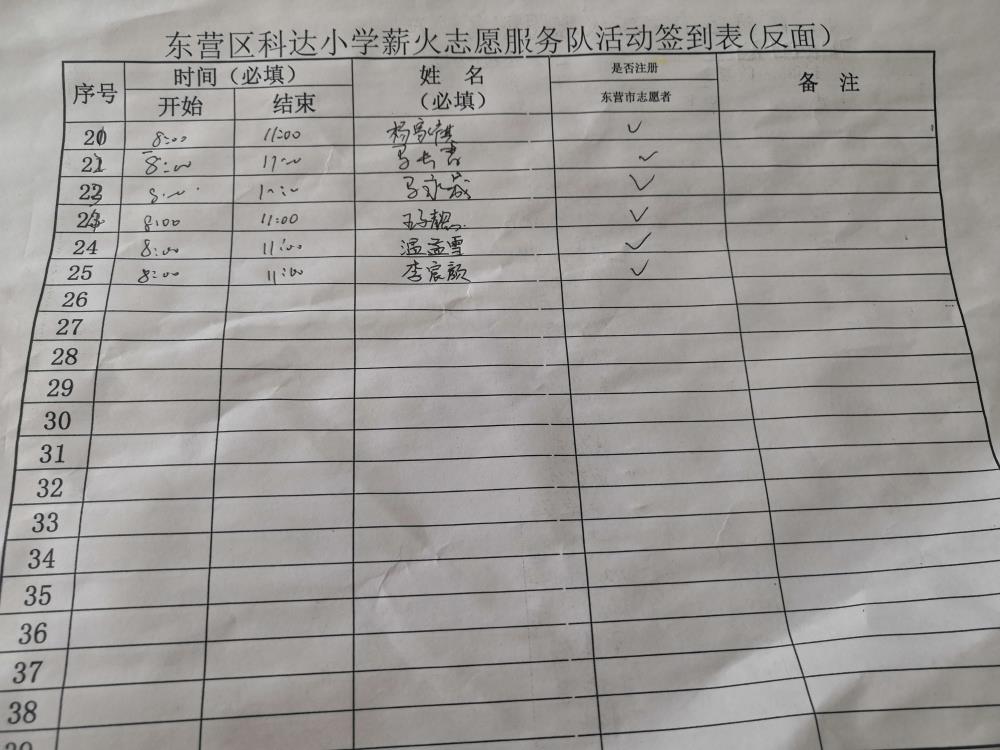 东营区科达小学薪火志愿服务队活动签到表(反面)
序号 时间(必填) 姓名(必填) 是否注册东营市志愿者 备注
开始 结束
20 8:00 11:00 ✓
21 8:00 11:00 ✓
✓
8:00 11:00 ✓
24 8:00 11:00 温孟雪 ✓
25 8:00 11:00 李宸颜 ✓
26
27
28
29
30
31
32
33
34
35
36
37
38
39